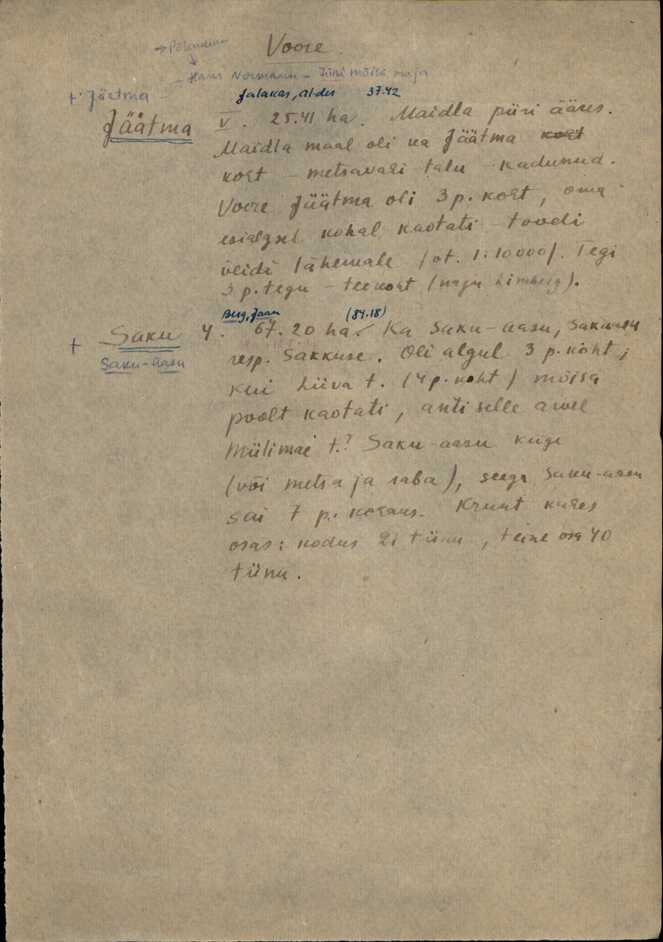 Voore.
→ Põlendum
Hans Normann – Jüri mõisa maja
+ Jäetma –
Jalakas, Al-der 37.42
Jäätma V. 25.41 ha. Maidla piiri ääres.
Maidla maal oli ka Jäätma
koht – metsavahi talu – kadunud.
Voore Jäätma oli 3 p. koht, oma
esialgsel kohal kaotati – toodi
veidi lähemale /vt. 1:10000/. Tegi
3 p. tegu – teokoht (nagu Limberg).
Berg, Jaan (84.18)
+ Saku 4. 67.20 ha. Ka Saku-aasu,
Saku-aasu
resp. Sakkuse. Oli algul 3 p. koht;
kui Liiva t. (4 p. koht) mõisa
poolt kaotati, anti selle arvel
Mülimäe t.? Saku-aasu külge
(või metsa ja raba), seega Saku-aasu
sai 7 p. kohaks. Krunt kahes
osas: kodus 21 tiinu, teine osa 40
tiinu.